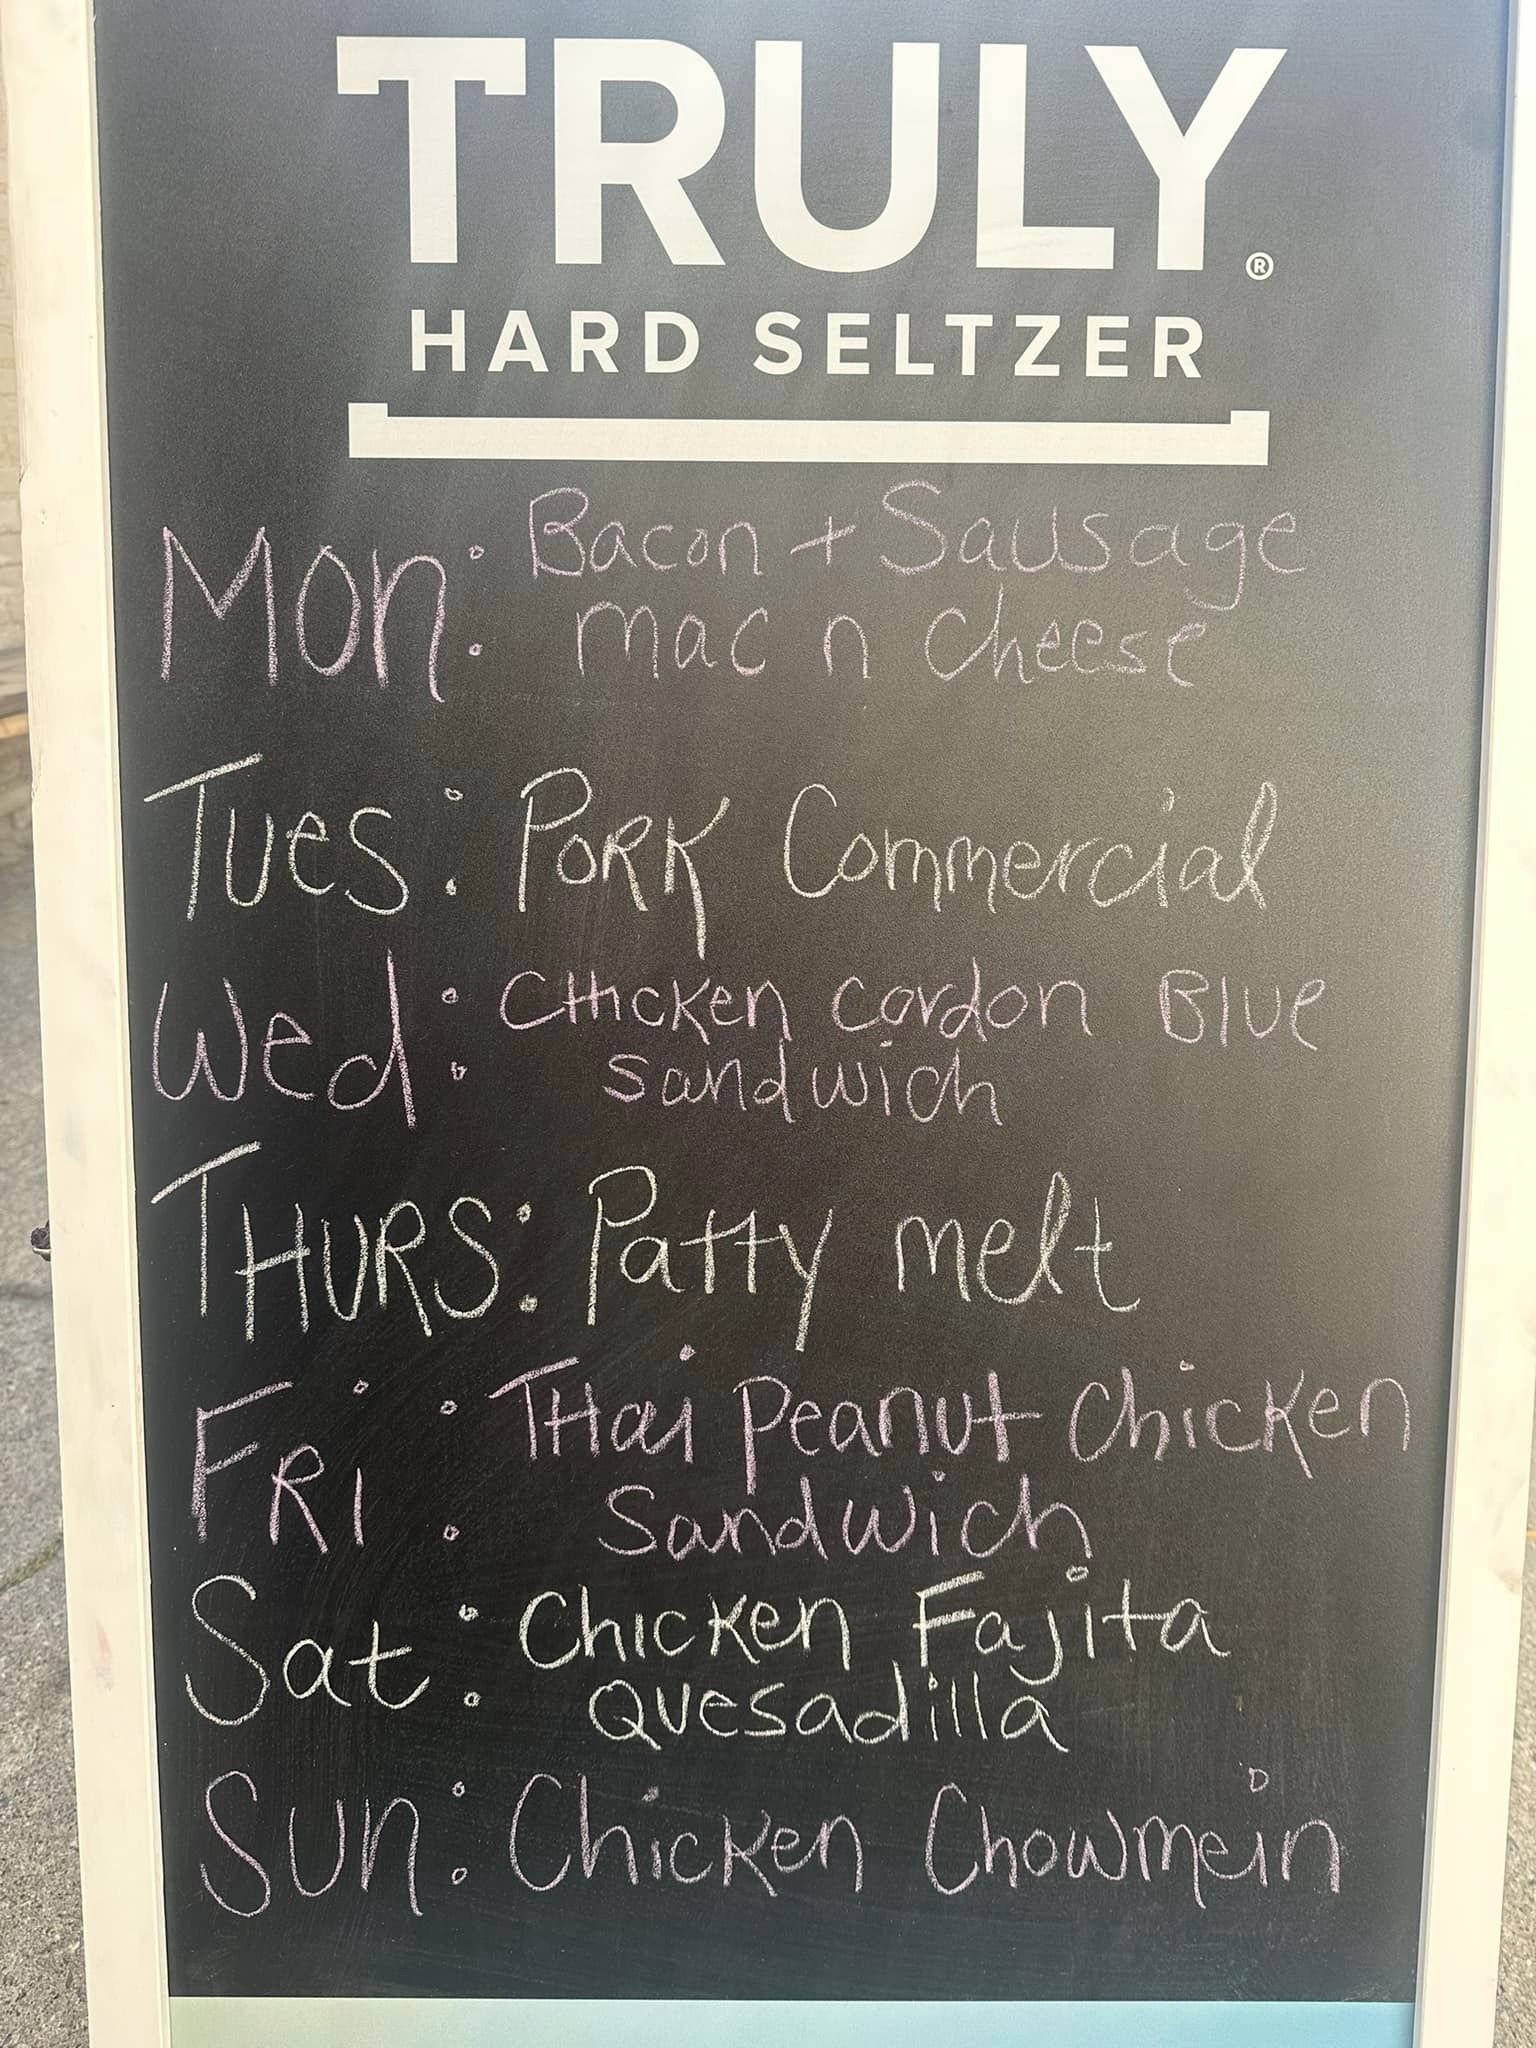 TRULY®
HARD SELTZER
Mon: Bacon + Sausage
mac n cheese
Tues: PORK Commercial
Wed: CHICKEN cordon Blue
sandwich
THURS: Patty melt
FRI: THai Peanut Chicken
Sandwich
Sat: Chicken Fajita
Quesadilla
Sun: Chicken Chowmein